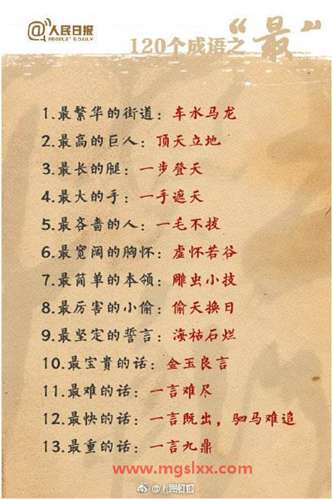 @人民日报
PEOPLE'S DAILY
120个成语之“最”
1.最繁华的街道：车水马龙
2.最高的巨人：顶天立地
3.最长的腿：一步登天
4.最大的手：一手遮天
5.最吝啬的人：一毛不拔
6.最宽阔的胸怀：虚怀若谷
7.最简单的本领：雕虫小技
8.最厉害的小偷：偷天换日
9.最坚定的誓言：海枯石烂
10.最宝贵的话：金玉良言
11.最难的话：一言难尽
12.最快的话：一言既出，驷马难追
13.最重的话：一言九鼎
www.mgslxx.com
@人民日报